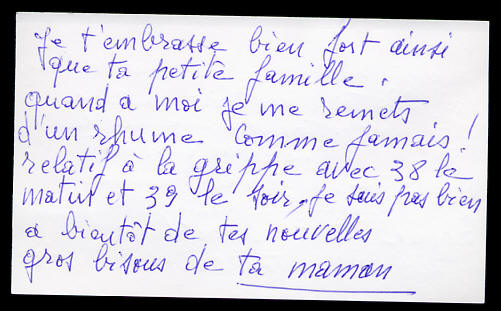 Je t'embrasse bien fort ainsi
que ta petite famille.
quand a moi je me remets
d'un rhume comme jamais!
relatif à la grippe avec 38 le
matin et 39 le soir, je suis pas bien
a bientôt de tes nouvelles
gros bisous de ta maman